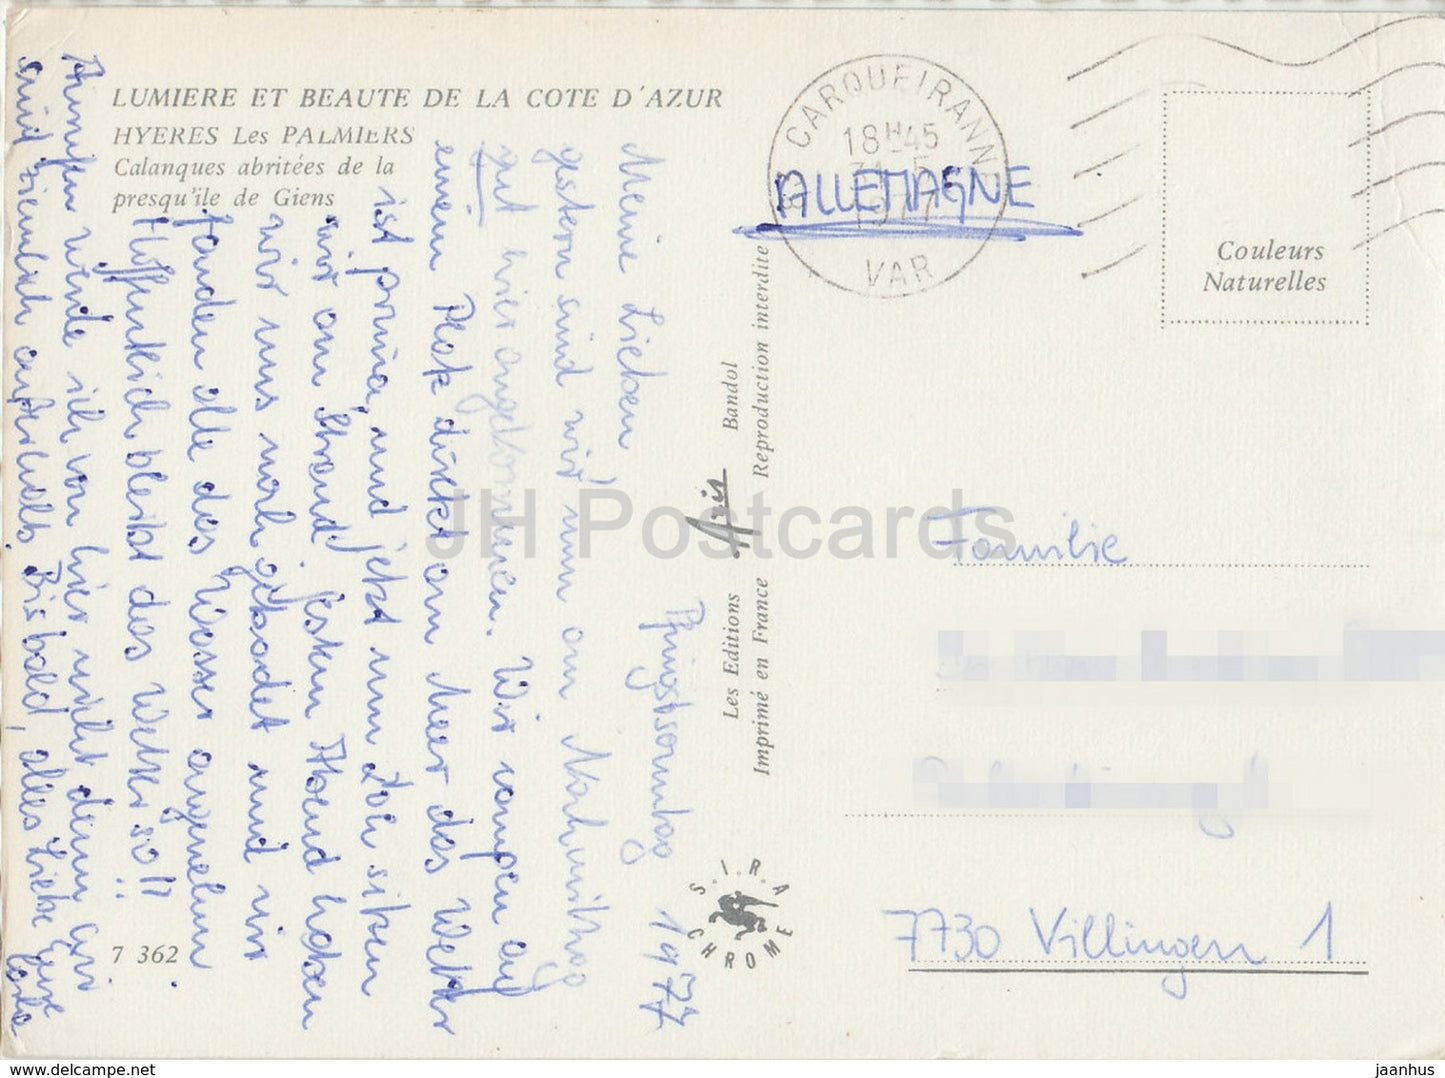 LUMIERE ET BEAUTE DE LA COTE D'AZUR
HYERES Les PALMIERS
Calanques abritées de la
presqu'île de Giens
Pfingstsonntag 1977
Meine Lieben!
gestern sind wir nun am Nachmittag
gut hier angekommen. Wir campen auf
einem Platz direkt am Meer das Wetter
ist prima, und jetzt nun Loh sitzen
wir am Strand, gestern Abend haben
wir uns noch gebadet und wir
fanden alle das Wasser angenehm.
Hoffentlich bleibt das Wetter so!!
Anrufen werde ich von hier nicht denn wir
sind ziemlich außerhalb. Bis bald, alles Liebe Eure
7 362
Les Editions Aris Bandol
Imprimé en France Reproduction interdite
S.I.R.A
CHROME
83 CARQUEIRANNE
18H45
31-5
1977
VAR
ALLEMAGNE
Couleurs
Naturelles
Familie
7730 Villingen 1
JH Postcards
www.delcampe.net
jaanhus